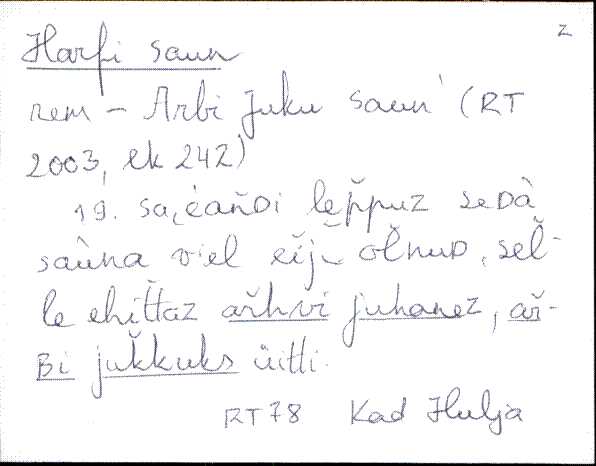 z
Harfi saun
rem – Arbi Juku saun' (RT
2003, lk 242)
19. sa,čaňDi leppuz seDà
saùna viel eij olnuD, sel-
le ehittaz arhvi juhanez, ar-
Bi jukkuks üitti.
RT78 Kad Hulja